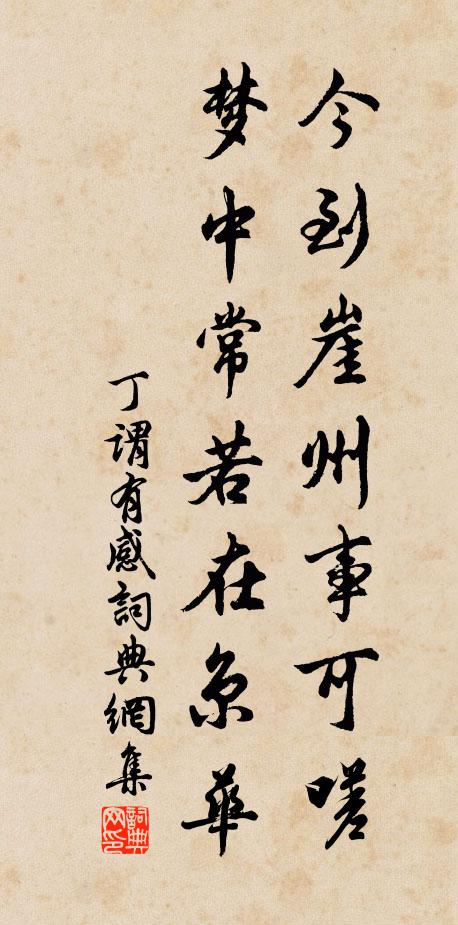 今到崖州事可嗟
梦中常若在京華
丁谓有感詞典網集
詞典网印